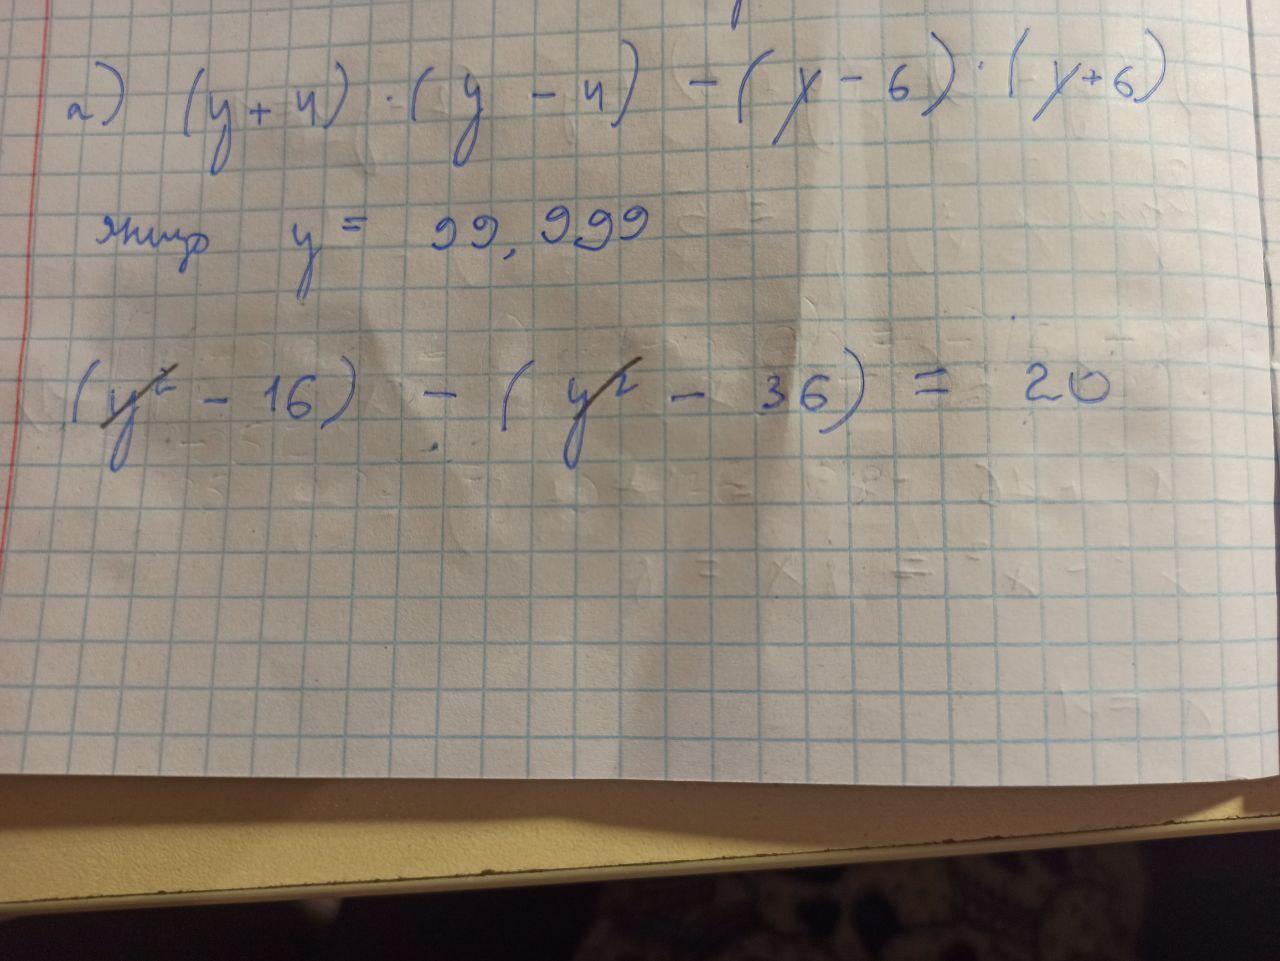 а) (y + 4) · (y - 4) - (y - 6) · (y + 6)
якщо y = 99,999
(y² - 16) - (y² - 36) = 20